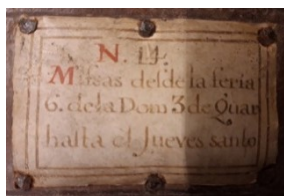 N. 14.
Missas desde la feria
6. de la Dom 3 de Quar
hasta el Jueves santo